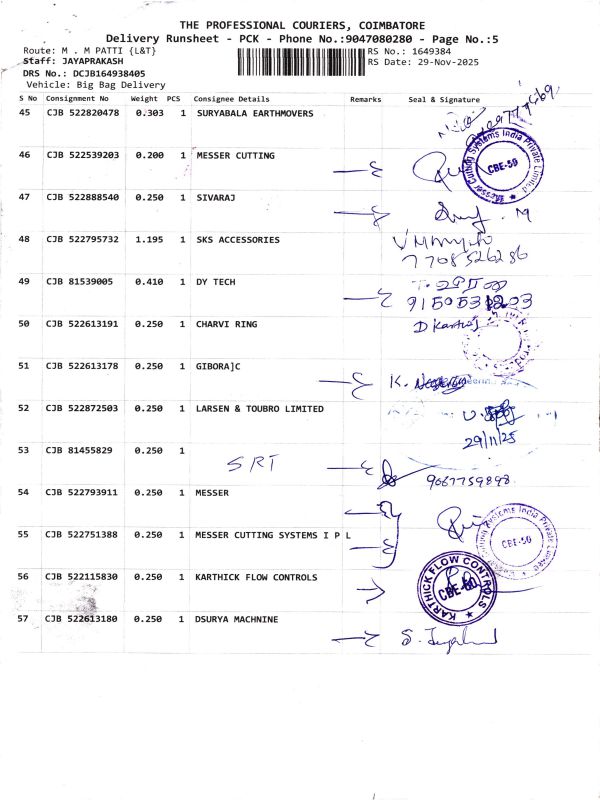 THE PROFESSIONAL COURIERS, COIMBATORE
Delivery Runsheet - PCK - Phone No.:9047080280 - Page No.:5
Route: M . M PATTI {L&T} RS No.: 1649384
Staff: JAYAPRAKASH RS Date: 29-Nov-2025
DRS No.: DCJB164938405
Vehicle: Big Bag Delivery
S No Consignment No Weight PCS Consignee Details Remarks Seal & Signature
45 CJB 522820478 0.303 1 SURYABALA EARTHMOVERS
46 CJB 522539203 0.200 1 MESSER CUTTING
Messer Cutting Systems India Private Limited
CBE-50
47 CJB 522888540 0.250 1 SIVARAJ
48 CJB 522795732 1.195 1 SKS ACCESSORIES
7708526286
49 CJB 81539005 0.410 1 DY TECH
50 CJB 522613191 0.250 1 CHARVI RING
51 CJB 522613178 0.250 1 GIBORA]C
K.
52 CJB 522872503 0.250 1 LARSEN & TOUBRO LIMITED
29/11/25
53 CJB 81455829 0.250 1
SRT 9667759898
54 CJB 522793911 0.250 1 MESSER
55 CJB 522751388 0.250 1 MESSER CUTTING SYSTEMS I P L
CBE-50
56 CJB 522115830 0.250 1 KARTHICK FLOW CONTROLS
KARTHICK FLOW CONTROLS
57 CJB 522613180 0.250 1 DSURYA MACHNINE